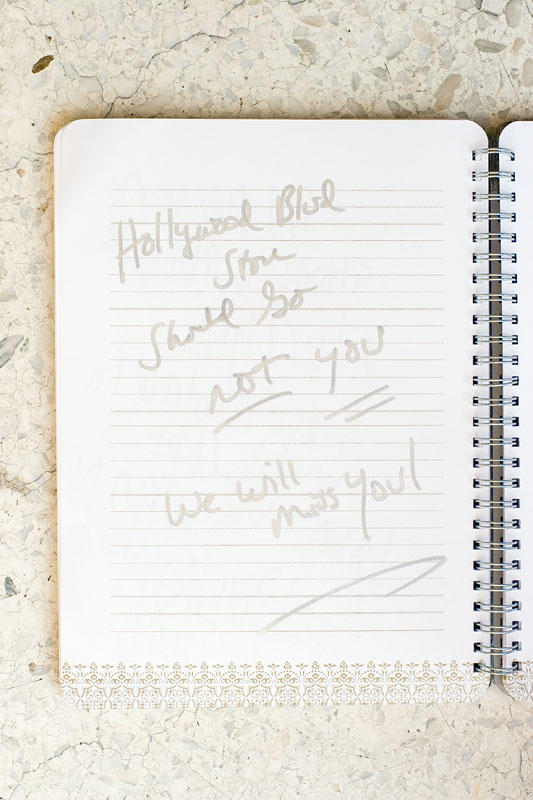 Hollywood Blvd
Store
Should Go
not you
We will
miss you!